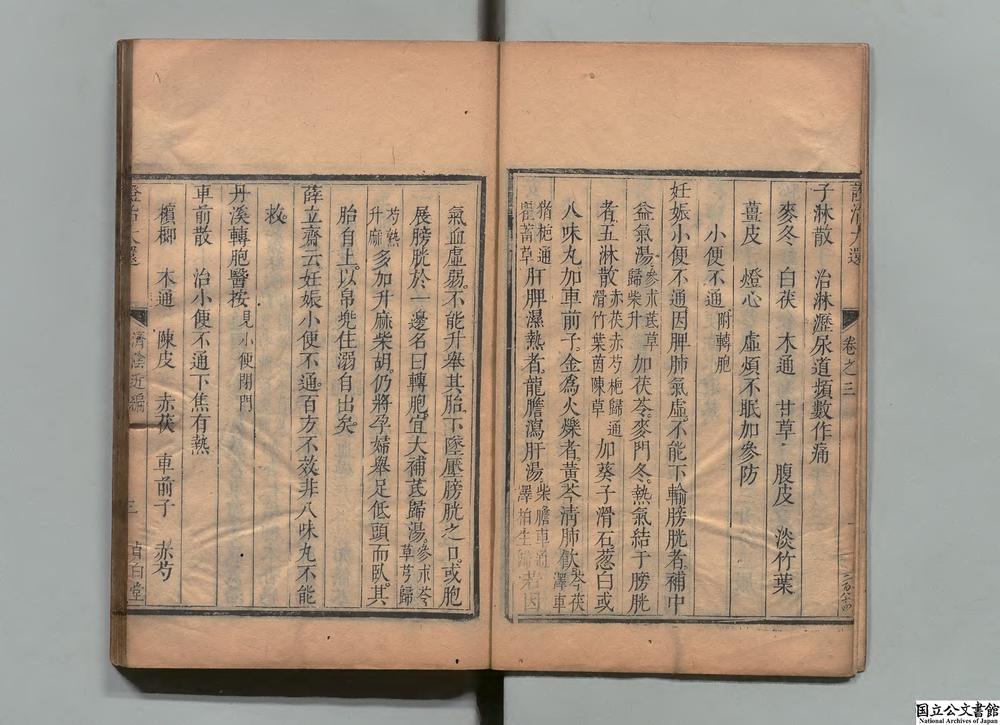 證治大還
卷之三
子淋散　治淋瀝尿道頻數作痛
麥冬　白茯　木通　甘草　腹皮　淡竹葉
薑皮　燈心　虛煩不眠加參防
小便不通附轉胞
妊娠小便不通因脾肺氣虛不能下輸膀胱者補中
益氣湯參朮芪草歸柴升加茯苓麥門冬熱氣結于膀胱
者五淋散赤茯赤芍梔歸通滑竹葉茵陳草加葵子滑石蔥白或
八味丸加車前子金爲火爍者黃芩清肺飲芩茯澤車
猪梔通瞿萹草肝脾濕熱者龍膽瀉肝湯柴膽車通澤柏生歸
氣血虛弱不能升舉其胎下墜壓膀胱之口或胞
展膀胱於一邊名曰轉胞宜大補芪歸湯參朮苓草芎歸
芍熟升麻多加升麻柴胡仍將孕婦舉足低頭而臥其
胎自上以帛兠住溺自出矣
薛立齋云妊娠小便不通百方不效非八味丸不能
救
丹溪轉胞醫按見小便閉門
車前散　治小便不通下焦有熱
檳榔　木通　陳皮　赤茯　車前子　赤芍
證治大還
濟陰近編
三
貞白堂
国立公文書館
National Archives of Japan